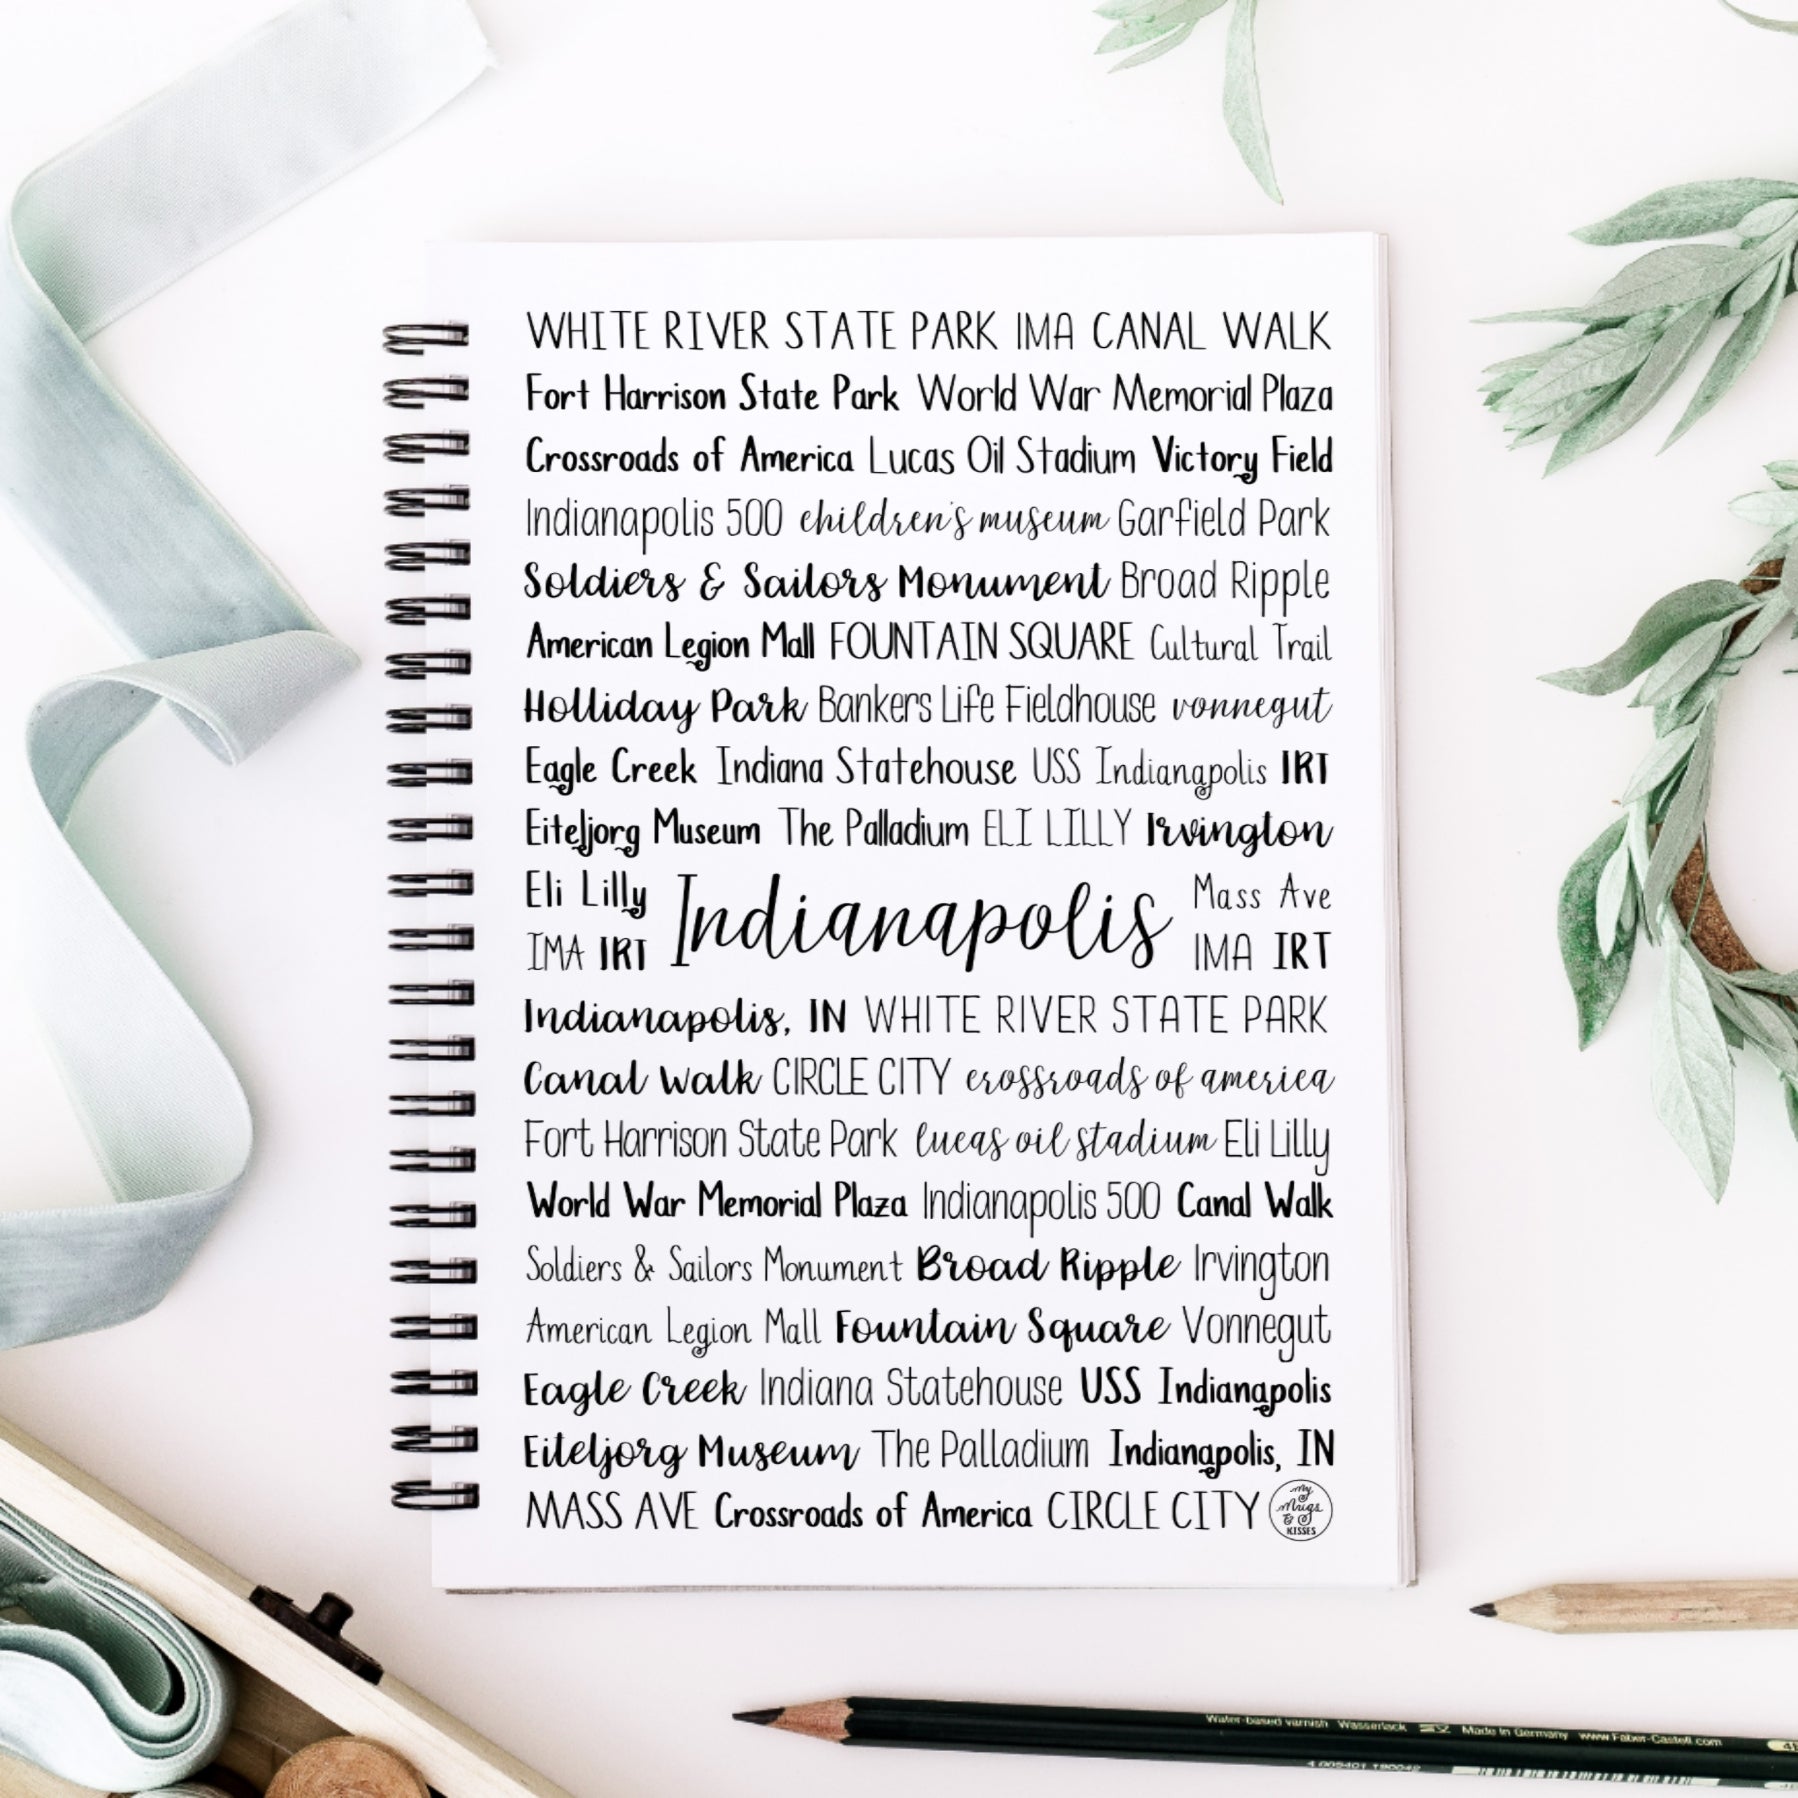 WHITE RIVER STATE PARK IMA CANAL WALK
Fort Harrison State Park World War Memorial Plaza
Crossroads of America Lucas Oil Stadium Victory Field
Indianapolis 500 children's museum Garfield Park
Soldiers & Sailors Monument Broad Ripple
American Legion Mall FOUNTAIN SQUARE Cultural Trail
Holliday Park Bankers Life Fieldhouse vonnegut
Eagle Creek Indiana Statehouse USS Indianapolis IRT
Eiteljorg Museum The Palladium ELI LILLY Irvington
Eli Lilly
IMA IRT
Indianapolis
Mass Ave
IMA IRT
Indianapolis, IN WHITE RIVER STATE PARK
Canal Walk CIRCLE CITY crossroads of america
Fort Harrison State Park lucas oil stadium Eli Lilly
World War Memorial Plaza Indianapolis 500 Canal Walk
Soldiers & Sailors Monument Broad Ripple Irvington
American Legion Mall Fountain Square Vonnegut
Eagle Creek Indiana Statehouse USS Indianapolis
Eiteljorg Museum The Palladium Indianapolis, IN
MASS AVE Crossroads of America CIRCLE CITY
My
Mugs
&
KISSES
Water-based varnish Wasserlack Made in Germany www.Faber-Castell.com
4 005401 190042